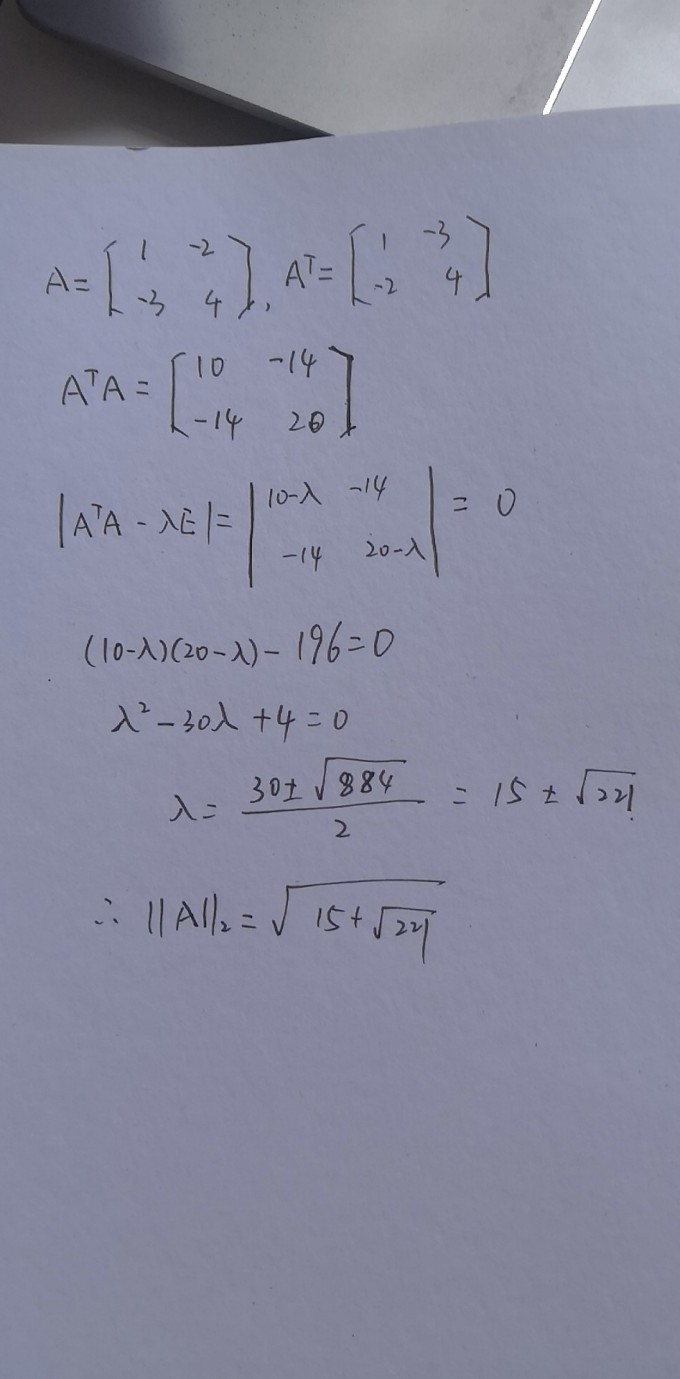 A = [ 1 -2 ; -3 4 ], Aᵀ = [ 1 -3 ; -2 4 ]
AᵀA = [ 10 -14 ; -14 20 ]
|AᵀA - λE| = | 10-λ -14 ; -14 20-λ | = 0
(10-λ)(20-λ) - 196 = 0
λ² - 30λ + 4 = 0
λ = (30 ± √884) / 2 = 15 ± √221
∴ ||A||₂ = √(15 + √221)